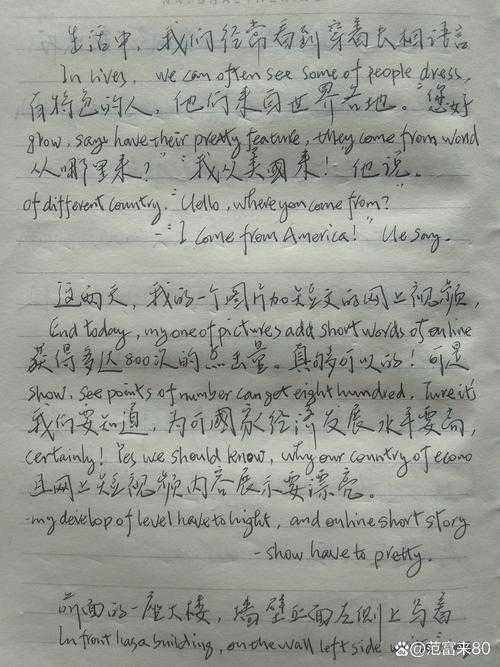 生活中，我们经常看到穿着大相语言
In lives, we can often see some of people dress,
有特色的人，他们来自世界各地。"您好
grow, says have their pretty feature, they come from world
从哪里来？" "我从美國来！他说。
of different country. "Hello, where you come from?"
-"I come from America!" He say.
这两天，我的一个图片加短文的网上视频，
End today, my one of pictures add short words of online
获得多达800次的点击量。真够可以的！可是
show, see points of number can get eight hundred, Ture it's
我们要知道，为何國家经济发展水平要高，
certainly! Yes we should know, why our country of econo
且网上短视频内容展示要漂亮。
-my develop of level have to hight, and online short story
-show have to pretty.
前面的一座大楼，墙壁正面左侧上写着
In front has a building, on the wall left side
@范富来80